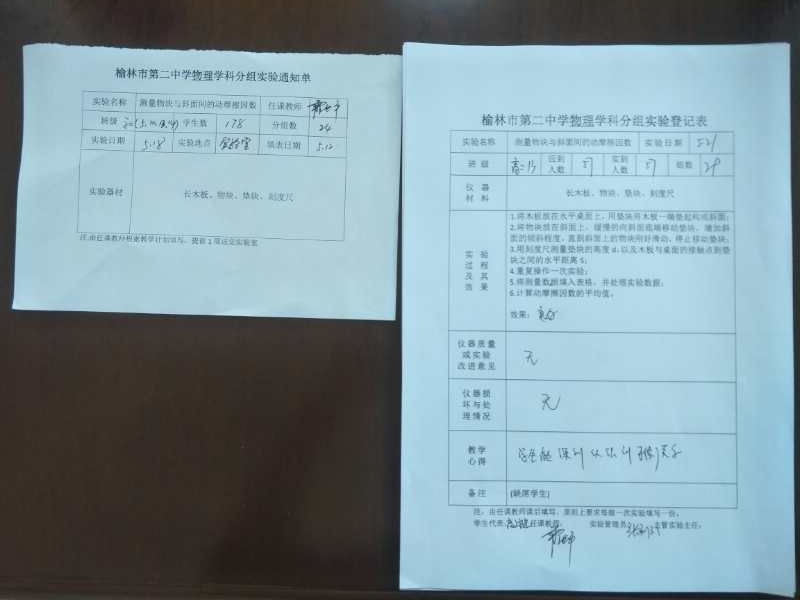 榆林市第二中学物理学科分组实验通知单
实验名称 测量物块与斜面间的动摩擦因数 任课教师
班级 学生数 178 分组数 24
实验日期 5.18 实验地点 实验室 填表日期 5.12
实验器材 长木板、物块、垫块、刻度尺
注:由任课教师根据教学计划填写、提前1周送交实验室
榆林市第二中学物理学科分组实验登记表
实验名称 测量物块与斜面间的动摩擦因数 实验日期 5.21
班级 应到人数 57 实到人数 57 组数
仪器材料 长木板、物块、垫块、刻度尺
实验过程及其效果
1.将木板放在水平桌面上,用垫块将木板一端垫起构成斜面;
2.将物块放在斜面上,缓慢的向斜面底端移动垫块,增加斜
面的倾斜程度,直到斜面上的物块刚好滑动,停止移动垫块;
3.用刻度尺测量垫块的高度d,以及木板与桌面的接触点到垫
块之间的水平距离S;
4.重复操作一次实验;
5.将测量数据填入表格,并处理实验数据;
6.计算动摩擦因数的平均值。
效果:良好
仪器质量或实验改进意见 无
仪器损坏与处理情况 无
教学心得
备注 (缺席学生)
注:由任课教师课后填写,原则上要求每做一次实验填写一份。
学生代表: 任课教师: 实验管理员: 主管实验主任: